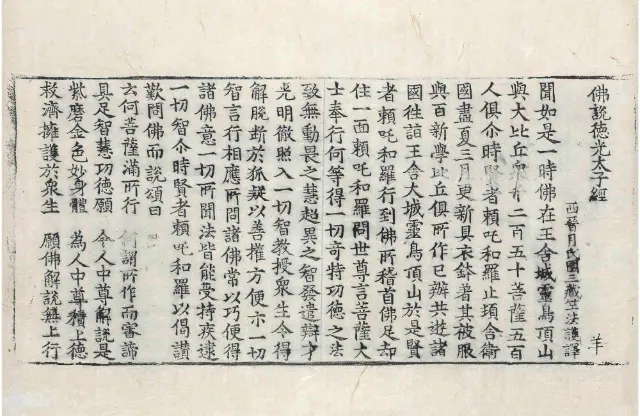 佛說德光太子經
西晉月氏國三藏竺法護譯
羊
聞如是一時佛在王舍城靈鳥頂山
與大比丘衆千二百五十菩薩五百
人俱尒時賢者頼吒和羅止頊舍衛
國盡夏三月更新具衣鉢著其被服
與百新學比丘俱所作已辦共遊諸
國往詣王舍大城靈鳥頂山於是賢
者頼吒和羅行到佛所稽首佛足却
住一面頼吒和羅問世尊言菩薩大
士奉行何等得一切奇特功德之法
致無動畏之慧超異之智發遣辯才
光明徹照入一切智教授衆生令得
解脫斷於狐疑以善權方便示一切
智言行相應所問諸佛常以巧便得
諸佛意一切所聞法皆能受持疾逮
一切智尒時賢者頼吒和羅以偈讃
歎問佛而說頌曰
云何菩薩滿所行 何謂所作而審諦
具足智慧功德願 令人中尊解說是
紫磨金色妙身體 為人中尊積上德
救濟擁護於衆生 願佛解說無上行